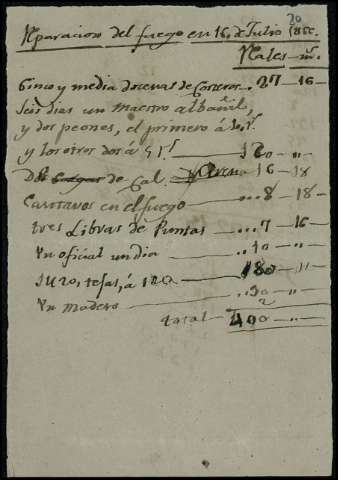 Reparacion del fuego en 16, de Julio
20
Rales — m.ˢ
Cinco y media docenas de 27 — 16 —
Seis dias un Maestro albañil,
y dos peones, el primero á 10, r.ˢ
y los otros dos á 5 r.ˢ 120 — „
de Cal 16 — 18
en el fuego ...8 — 18 —
tres Libras de Puntas ...7 — 16 —
Un oficial un dia ..10 — „
tejas, á 180 — „
Un madero ..30 — „
total — 400 — „